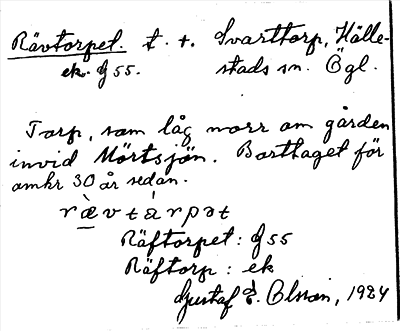 Rävtorpet. t. t. Svarttorp, Hälle-
ek. G 55. stads sn. Ögl.
Torp, som låg norr om gården
invid Mörtsjön. Borttaget för
omkr 30 år sedan.
ræ̀vtárpət
Räftorpet: G 55
Räftorp: ek
Gustaf Olsson, 1924